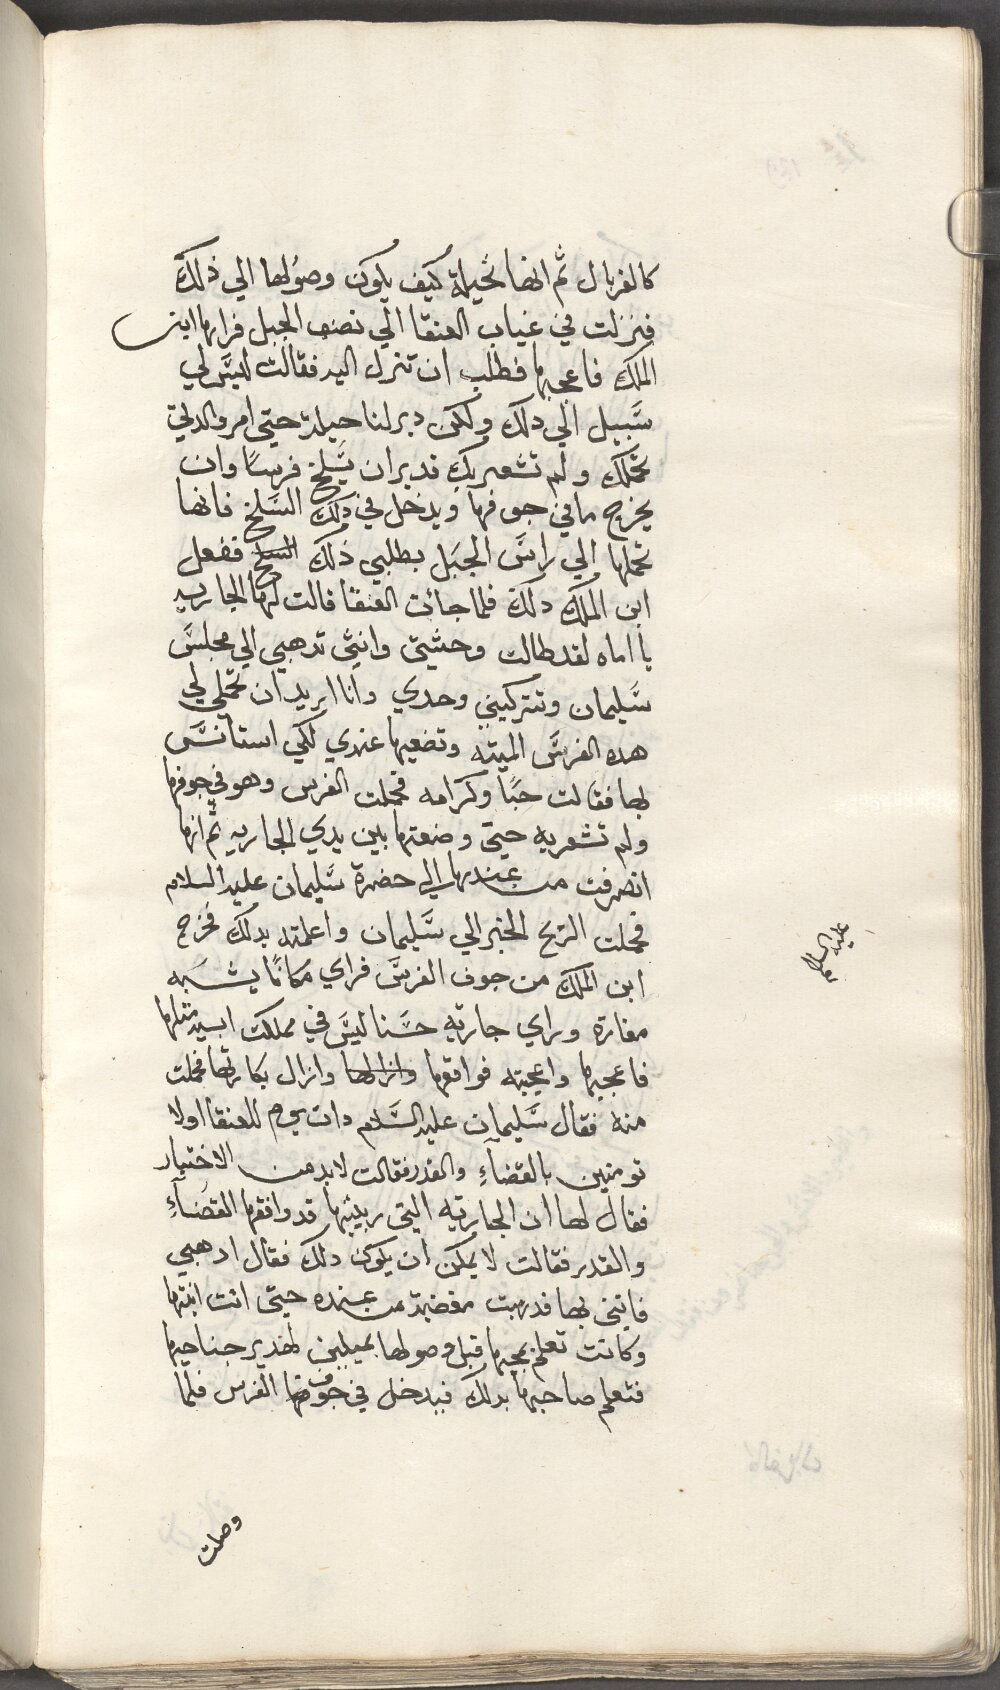 كالغربال ثم انها تحيلة كيف يكون وصولها الي ذلك
فنزلت في غياب العنقا الي نصف الجبل فراها ابن
الملك فاعجبها فطلب ان تنزل اليه فقالت ليس لي
سبيل الي دلك ولكن دبر لنا حيلة حتي امر والدتي
تحملك ولم تشعر بك فدبر ان يسلخ فرسا وان
يخرج ما في جوفها ويدخل في دلك السلخ فانها
تحملها الي راس الجبل بطلبي ذلك السلخ ففعل
ابن الملك دلك فلما جات العنقا قالت لها الجاريه
يا اماه لقد طالت وحشتي وانتي تدهبي الي مجلس
سليمان وتتركيني وحدي وانا اريد ان تحملي لي
هده الفرس الميته وتضعيها عندي لكي استانس
بها فقالت حبا وكرامه فحملت الفرس وهو في جوفها
ولم تشعر به حتي وضعتها بين يدي الجاريه ثم انها
انصرفت من عندها الي حضرة سليمان عليه السلام
فحملت الريح الخبر الي سليمان واعلمته بدلك فخرج
ابن الملك من جوف الفرس فراي مكانا يشبه
مغارة وراي جاريه حسنا ليس في مملكت ابيه مثلها
فاعجبها واعجبته فواقعها وانزلها وازال بكارتها فحملت
منه فقال سليمان عليه السلام دات يوم للعنقا اولا
تومنين بالقضآء والقدر فقالت لابد من الاختيار
فقال لها ان الجاريه التي ربيتيها قد وافقها القضآء
والقدر فقالت لا يمكن ان يكون دلك فقال ادهبي
فاتني بها فدهبت مغضبة من عنده حتي اتت ابنتها
وكانت تعلم بمجيها قبل وصولها بميلين لهدير جناحيها
فتعلم صاحبها بدلك فيدخل في جوف الفرس فلما
عليه السلام
وصلت